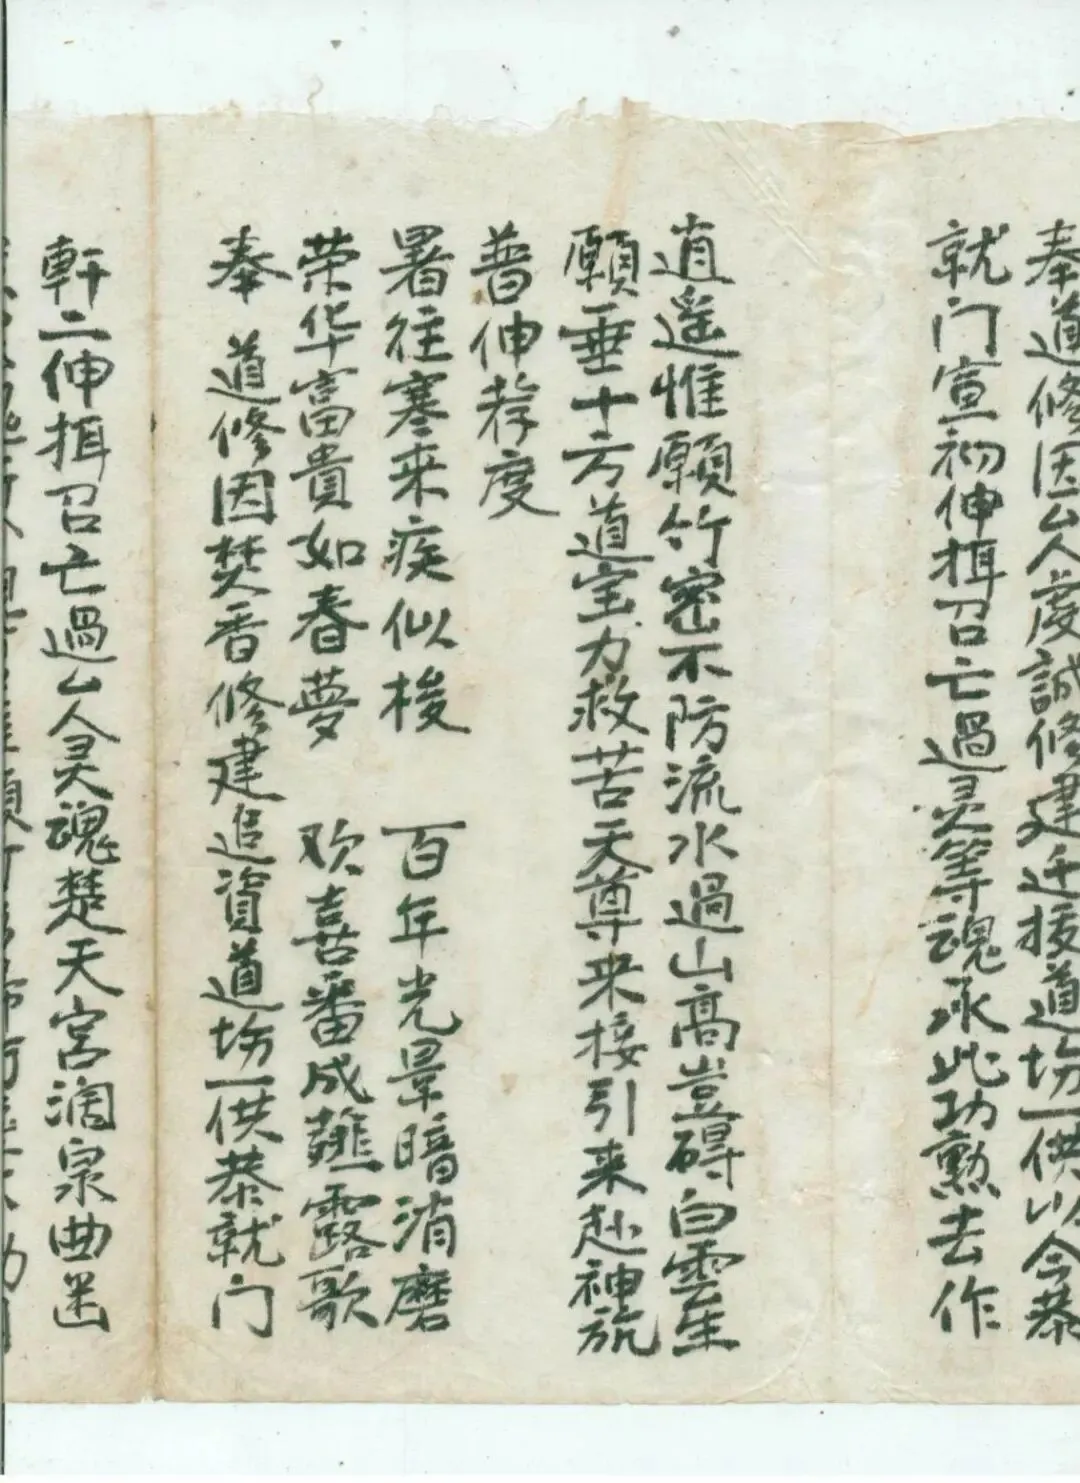 奉道修因厶人虔誠修建迁拔道场一供以今恭
就门宣初伸揖召亡過灵等魂承此功勲去作
逍遥惟願竹密不防流水過山高豈碍白雲生
願垂十方道宝力救苦天尊来接引来赴神旂
普伸荐度
暑往寒来疾似梭 百年光景暗消磨
荣华富貴如春夢 欢喜番成薤露歌
奉 道修因焚香修建追資道场一供恭就门
軒二伸揖召亡過厶人灵魂楚天宫濶泉曲迷